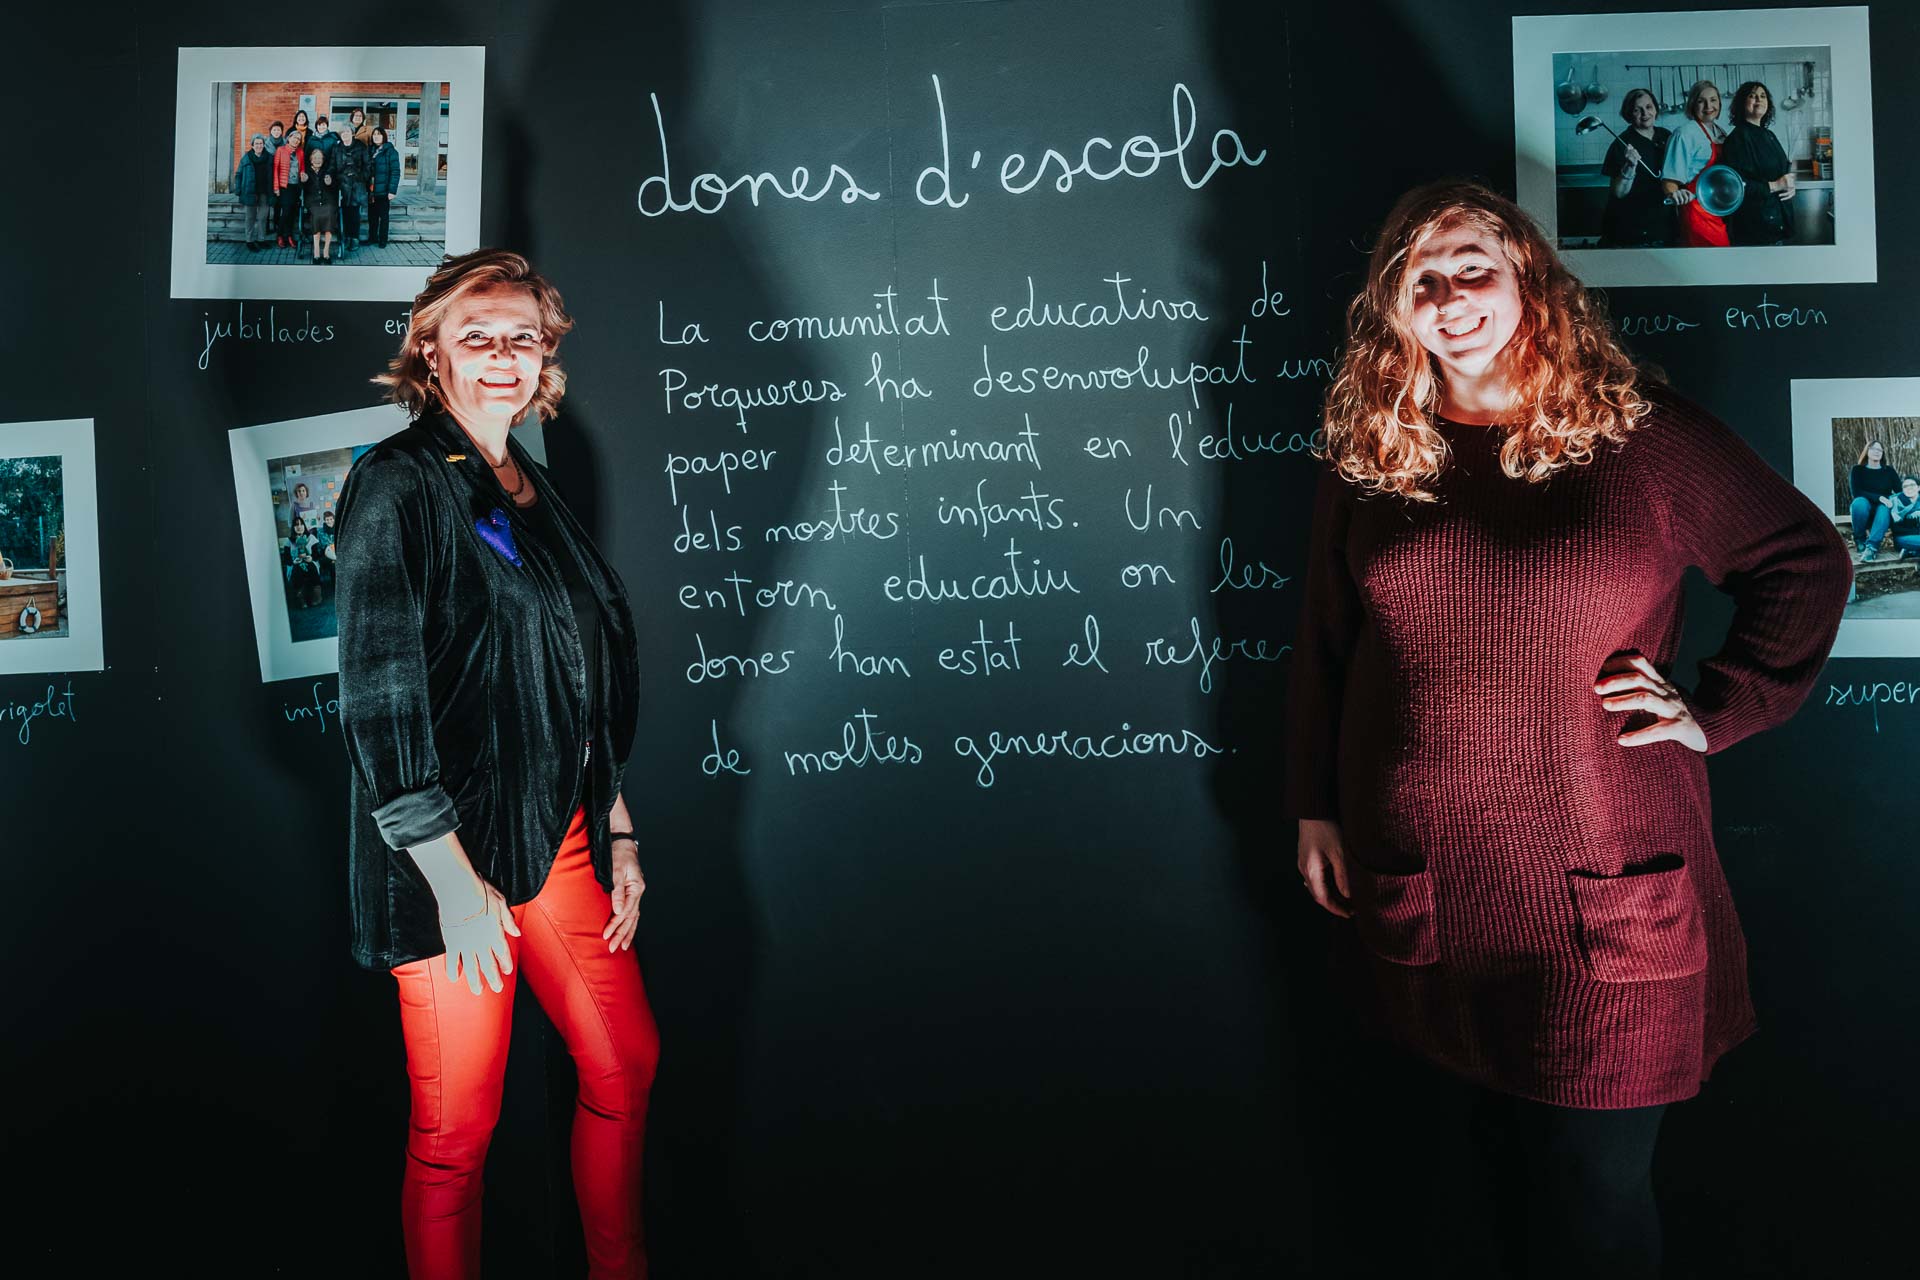 dones d'escola
La comunitat educativa de
Porqueres ha desenvolupat un
paper determinant en l'educac
dels nostres infants. Un
entorn educatiu on les
dones han estat el referen
de moltes generacions.
jubilades en
eres entorn
rigolet
infa
super